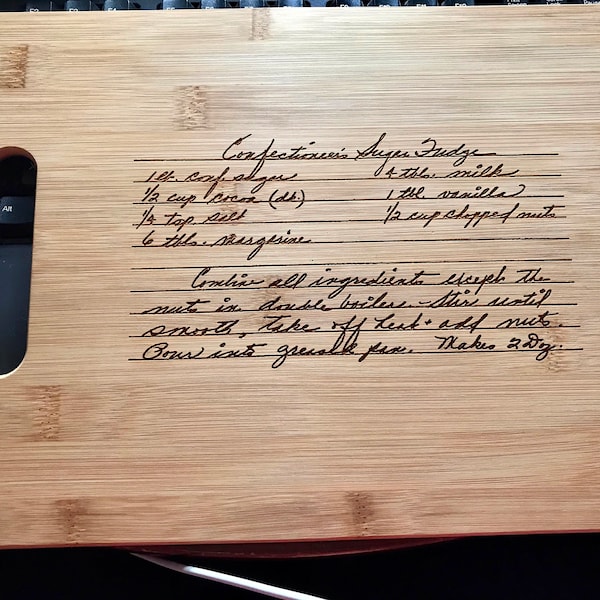 Confectioner's Sugar Fudge
1 lb. conf. sugar 4 tbls. milk
1/2 cup cocoa (dk.) 1 tbl. vanilla
1/4 tsp. salt 1/2 cup chopped nuts
6 tbls. margarine
Combine all ingredients except the
nuts in double boiler. Stir until
smooth, take off heat + add nuts.
Pour into greased pan. Makes 2 Doz.
Alt